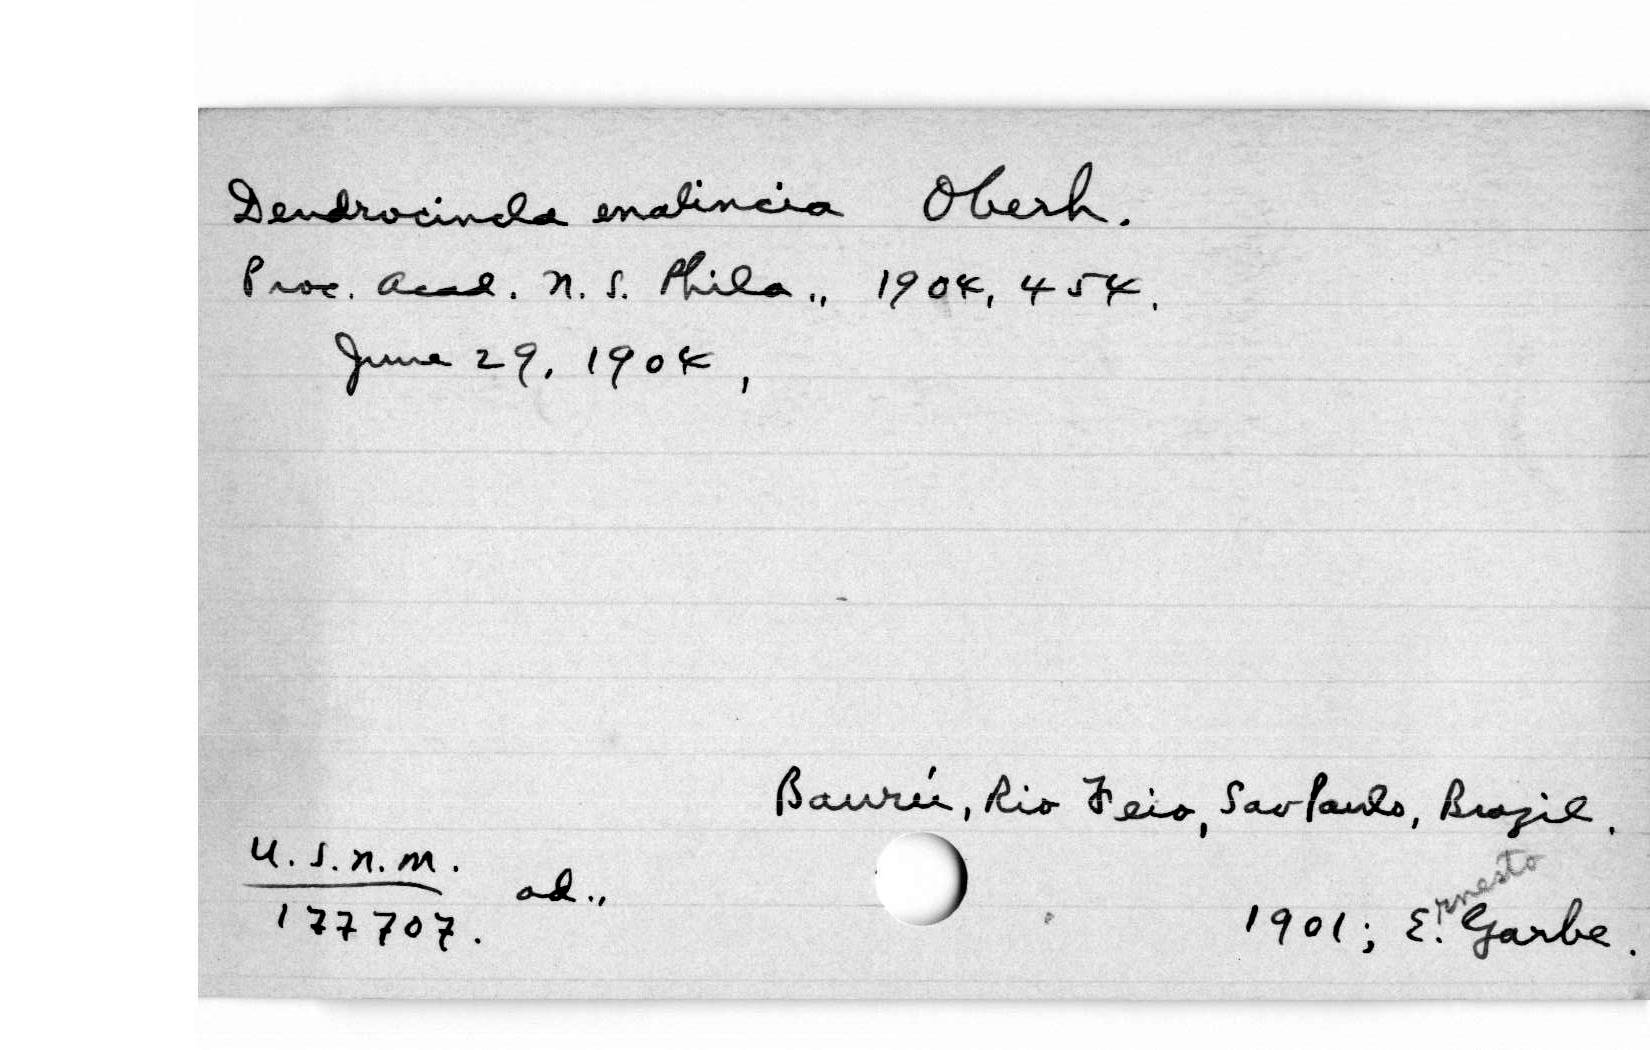 Dendrocincla enalincia Oberh.
Proc. Acad. N. S. Phila., 1904, 454.
June 29, 1904,
Baurú, Rio Feio, Sao Paulo, Brazil.
U.S.N.M.
177707. ad.,
1901; E.rnesto Garbe.